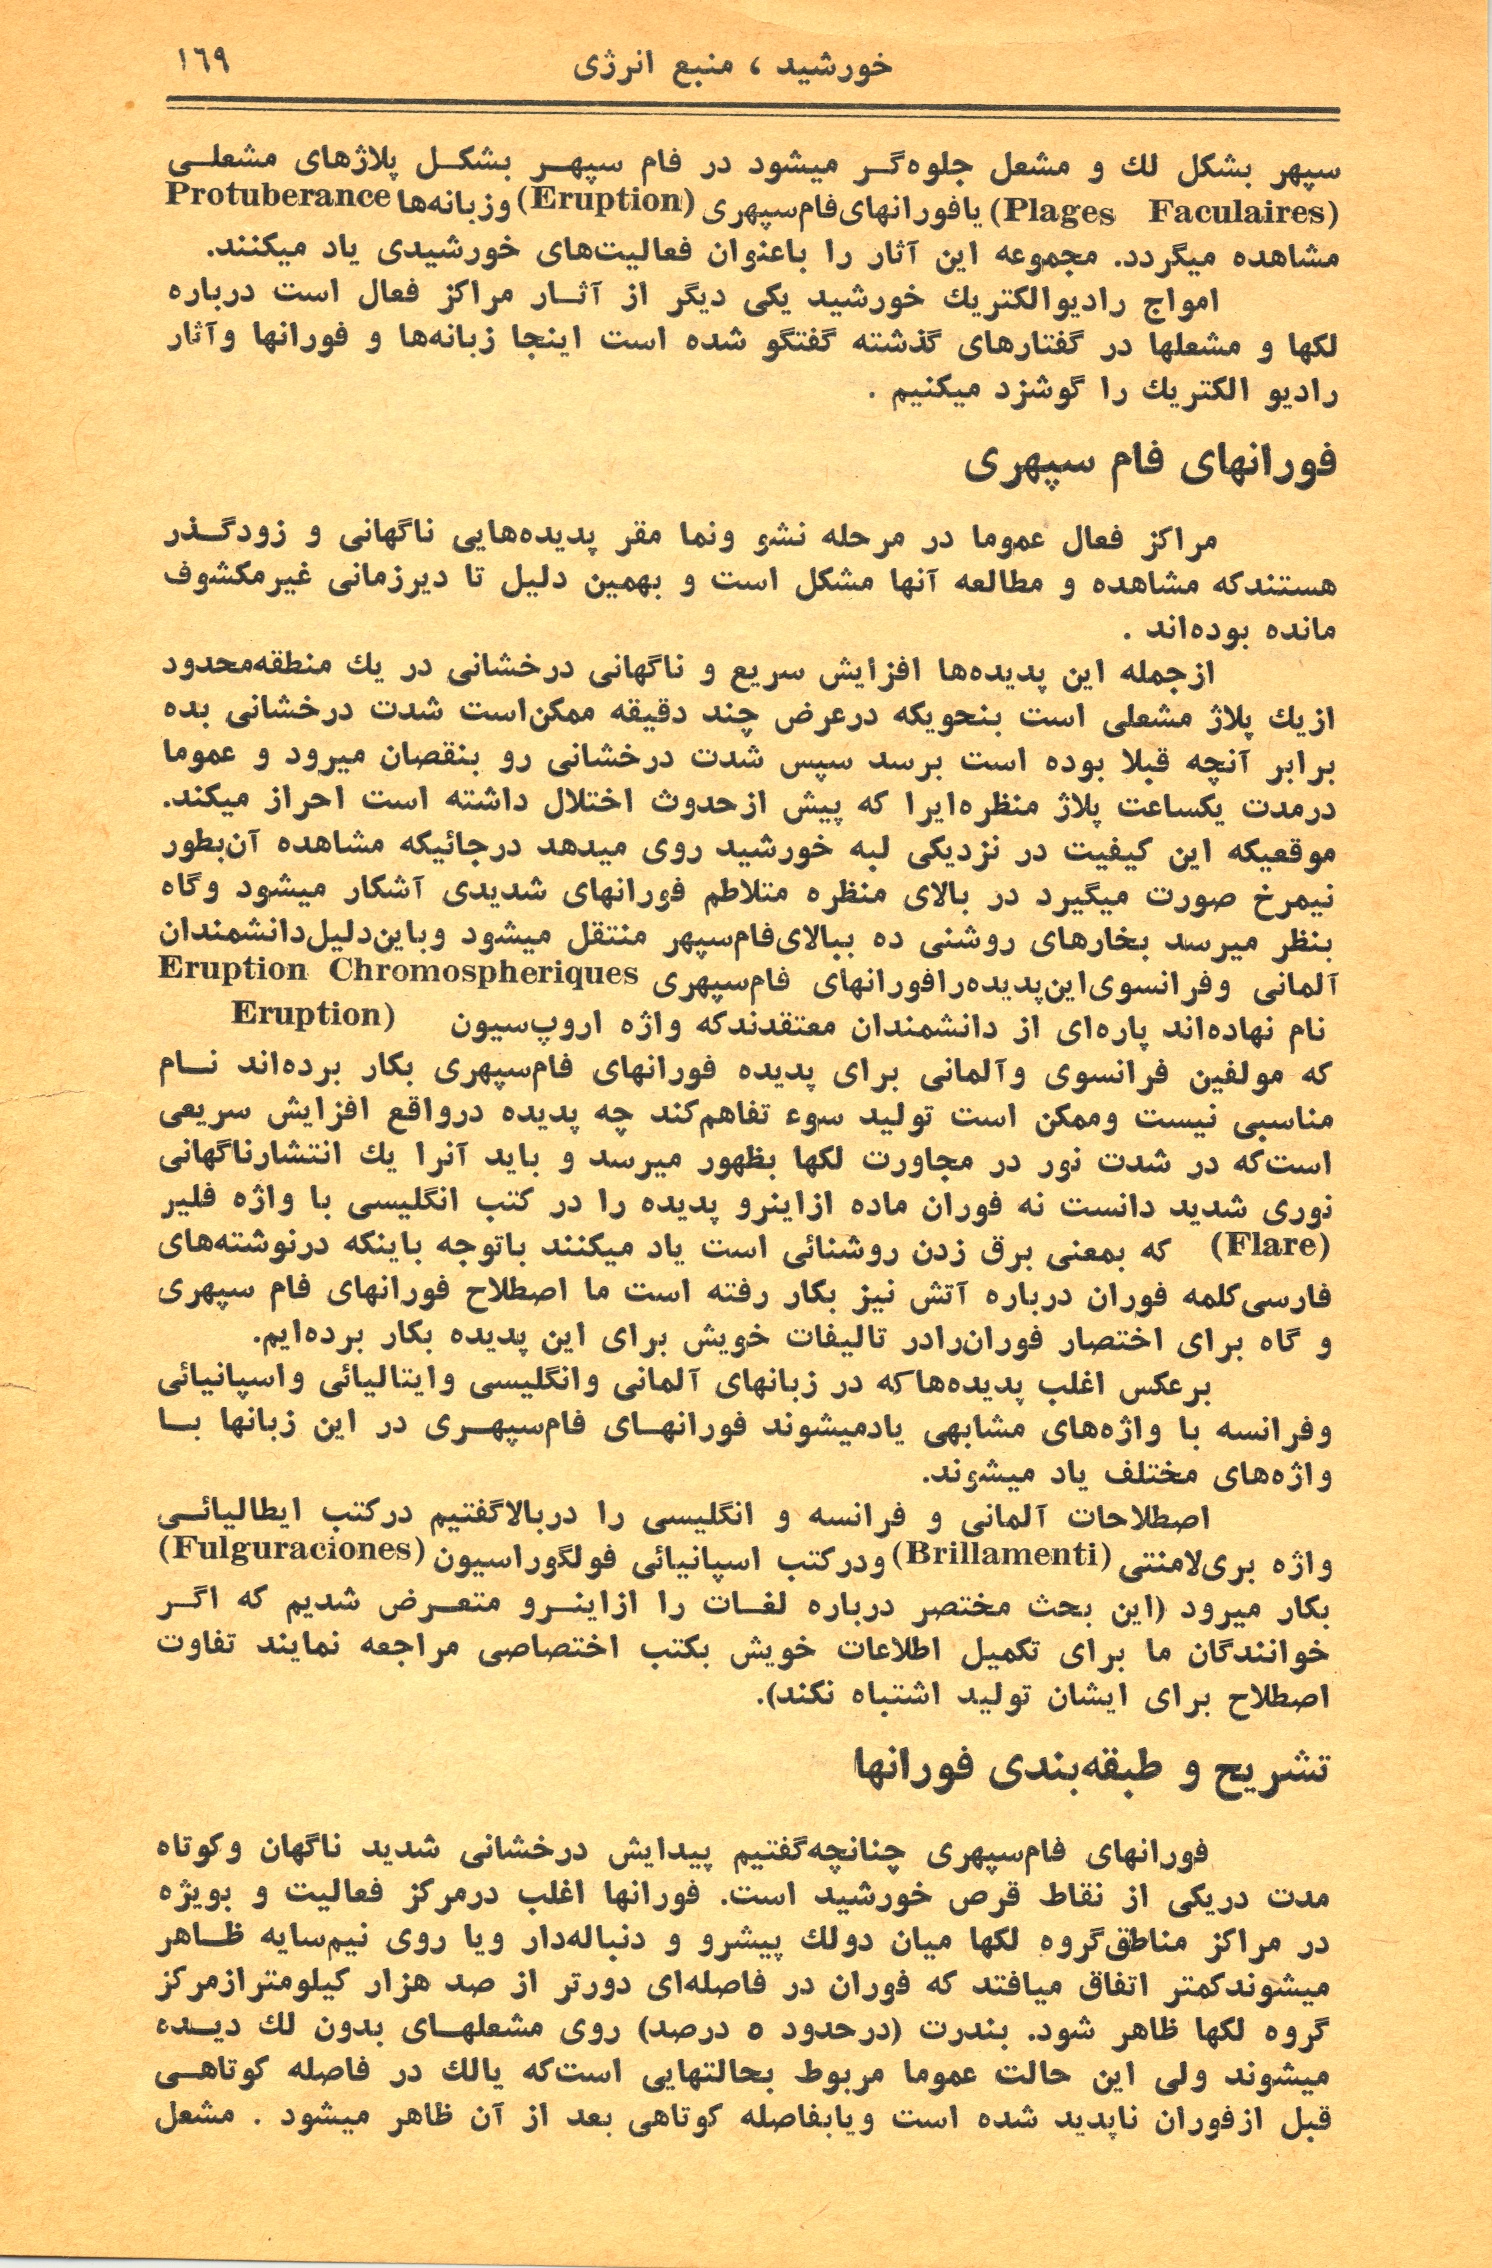 خورشید ، منبع انرژی
١٦٩
سپهر بشکل لك و مشعل جلوه‌گـر میشود در فام سپهـر بشکـل پلاژهای مشعلـی
(Plages Faculaires) یافورانهای‌فام‌سپهری (Eruption) وزبانه‌ها Protuberance
مشاهده میگردد. مجموعه این آثار را باعنوان فعالیت‌های خورشیدی یاد میکنند.
امواج رادیوالکتریك خورشید یکی دیگر از آثـار مراکز فعال است درباره
لکها و مشعلها در گفتارهای گذشته گفتگو شده است اینجا زبانه‌ها و فورانها وآثار
رادیو الکتریك را گوشزد میکنیم .
فورانهای فام سپهری
مراکز فعال عموما در مرحله نشو ونما مقر پدیده‌هایی ناگهانی و زودگـذر
هستندکه مشاهده و مطالعه آنها مشکل است و بهمین دلیل تا دیرزمانی غیرمکشوف
مانده بوده‌اند .
ازجمله این پدیده‌ها افزایش سریع و ناگهانی درخشانی در یك منطقه‌محدود
ازیك پلاژ مشعلی است بنحویکه درعرض چند دقیقه ممکن‌است شدت درخشانی بده
برابر آنچه قبلا بوده است برسد سپس شدت درخشانی رو بنقصان میرود و عموما
درمدت یکساعت پلاژ منظره‌ایرا که پیش ازحدوث اختلال داشته است احراز میکند.
موقعیکه این کیفیت در نزدیکی لبه خورشید روی میدهد درجائیکه مشاهده آن‌بطور
نیمرخ صورت میگیرد در بالای منظره متلاطم فورانهای شدیدی آشکار میشود وگاه
بنظر میرسد بخارهای روشنی ده ببالای‌فام‌سپهر منتقل میشود وباین‌دلیل‌دانشمندان
آلمانی وفرانسوی‌این‌پدیده‌رافورانهای فام‌سپهری Eruption Chromospheriques
نام نهاده‌اند پاره‌ای از دانشمندان معتقدندکه واژه اروپ‌سیون Eruption)
که مولفین فرانسوی وآلمانی برای پدیده فورانهای فام‌سپهری بکار برده‌اند نـام
مناسبی نیست وممکن است تولید سوء تفاهم‌کند چه پدیده درواقع افزایش سریعی
است‌که در شدت نور در مجاورت لکها بظهور میرسد و باید آنرا یك انتشارناگهانی
نوری شدید دانست نه فوران ماده ازاینرو پدیده را در کتب انگلیسی با واژه فلیر
(Flare) که بمعنی برق زدن روشنائی است یاد میکنند باتوجه باینکه درنوشته‌های
فارسی‌کلمه فوران درباره آتش نیز بکار رفته است ما اصطلاح فورانهای فام سپهری
و گاه برای اختصار فوران‌رادر تالیفات خویش برای این پدیده بکار برده‌ایم.
برعکس اغلب پدیده‌هاکه در زبانهای آلمانی وانگلیسی وایتالیائی واسپانیائی
وفرانسه با واژه‌های مشابهی یادمیشوند فورانهـای فام‌سپهـری در این زبانها بـا
واژه‌های مختلف یاد میشوند.
اصطلاحات آلمانی و فرانسه و انگلیسی را دربالاگفتیم درکتب ایطالیائـی
واژه بری‌لامنتی (Brillamenti) ودرکتب اسپانیائی فولگوراسیون (Fulguraciones)
بکار میرود (این بحث مختصر درباره لغـات را ازاینـرو متعـرض شدیم که اگـر
خوانندگان ما برای تکمیل اطلاعات خویش بکتب اختصاصی مراجعه نمایند تفاوت
اصطلاح برای ایشان تولید اشتباه نکند).
تشریح و طبقه‌بندی فورانها
فورانهای فام‌سپهری چنانچه‌گفتیم پیدایش درخشانی شدید ناگهان وکوتاه
مدت دریکی از نقاط قرص خورشید است. فورانها اغلب درمرکز فعالیت و بویژه
در مراکز مناطق‌گروه لکها میان دولك پیشرو و دنباله‌دار ویا روی نیم‌سایه ظـاهر
میشوندکمتر اتفاق میافتد که فوران در فاصله‌ای دورتر از صد هزار کیلومترازمرکز
گروه لکها ظاهر شود. بندرت (درحدود ٥ درصد) روی مشعلهـای بدون لك دیـده
میشوند ولی این حالت عموما مربوط بحالتهایی است‌که یالك در فاصله کوتاهـی
قبل ازفوران ناپدید شده است ویابفاصله کوتاهی بعد از آن ظاهر میشود . مشعل